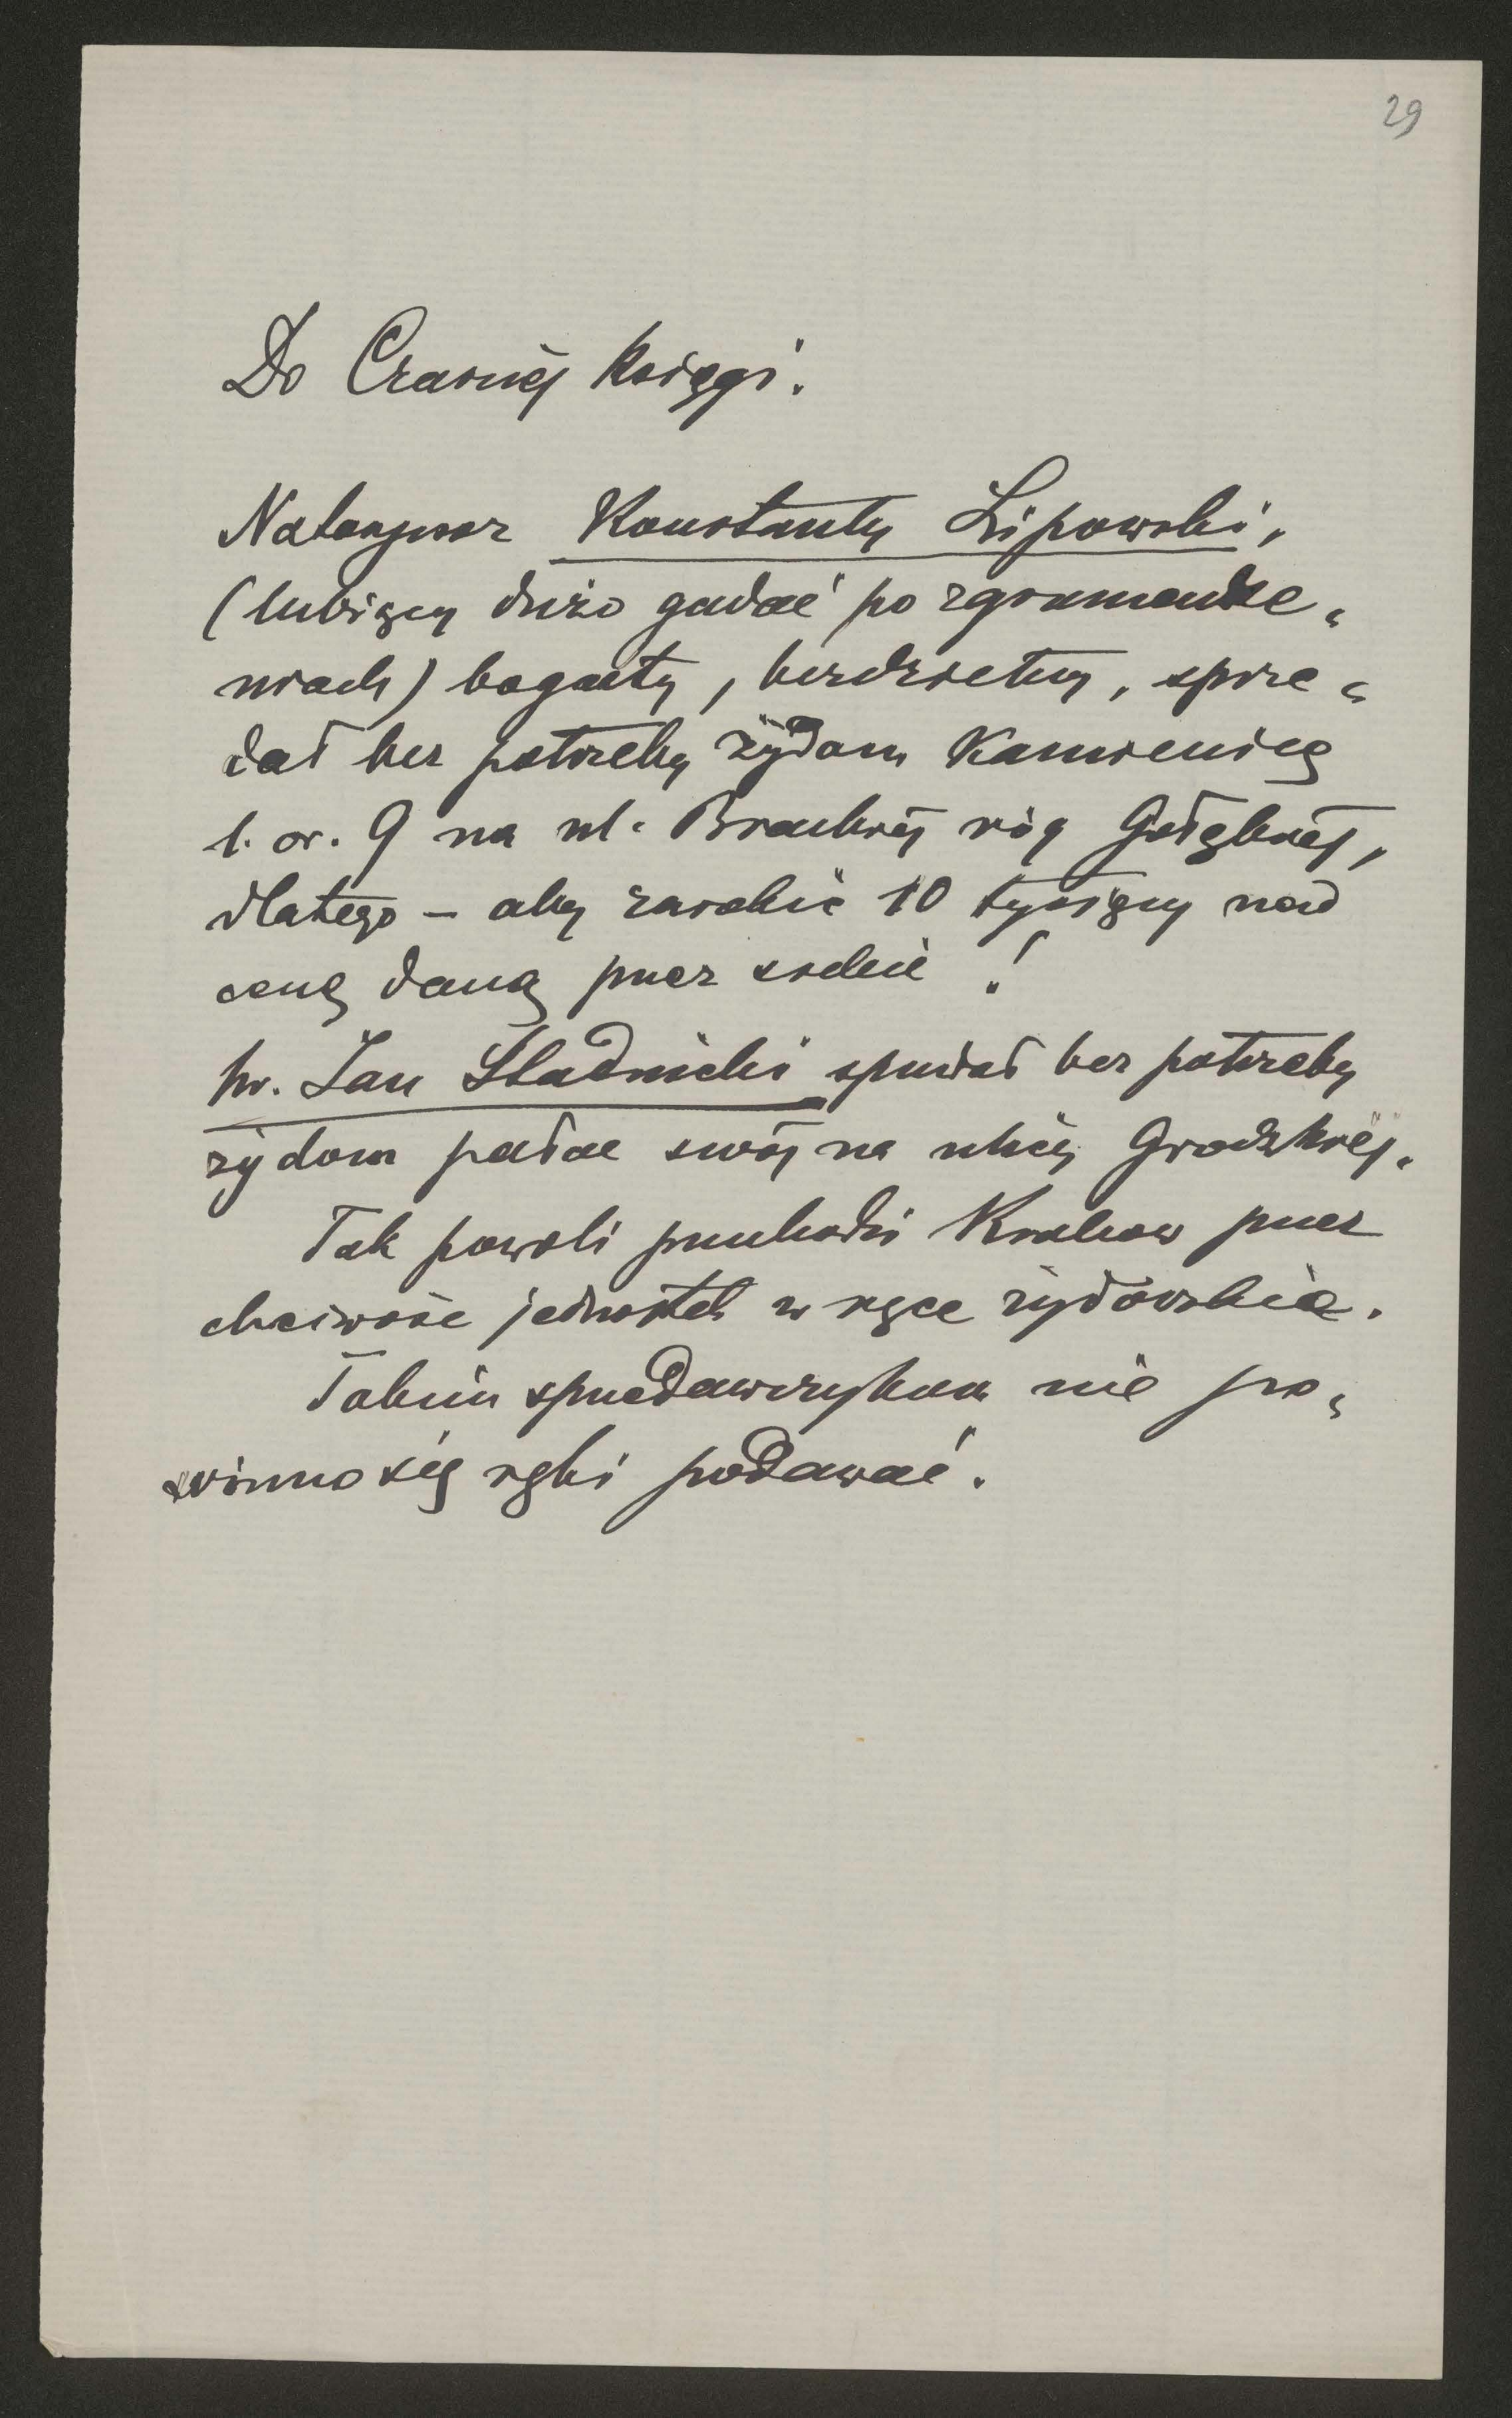 29
Do Czarnéj księgi.
Notaryusz Konstanty Lipowski,
(lubiący dużo gadać po zgromadze„
niach) bogaty, bezdzietny, sprze„
dał bez potrzeby żydom Kamienicę
l. or. 9 na ul. Brackiéj róg Gołębiéj,
dlatego – aby zarobić 10 tysięcy nad
cenę daną przez siebie!
hr. Jan Stadnicki sprzedał bez potrzeby
żydom pałac swój na ulicy Grodzkiéj.
Tak powoli przechodzi Krakow przez
chciwość jednostek w ręce żydowskie.
Takim sprzedawczykom nie po„
winno się ręki podawać.